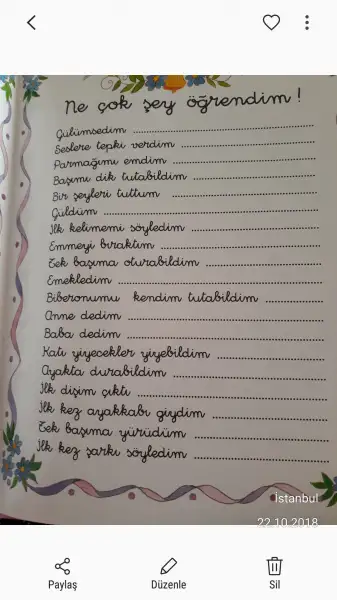 Ne çok şey öğrendim !
Gülümsedim ...............................................
Seslere tepki verdim ...............................................
Parmağımı emdim ...............................................
Başımı dik tutabildim ...............................................
Bir şeyleri tuttum ...............................................
Güldüm ...............................................
İlk kelimemi söyledim ...............................................
Emmeyi bıraktım ...............................................
Tek başıma oturabildim ...............................................
Emekledim ...............................................
Biberonumu kendim tutabildim .....................
Anne dedim ...............................................
Baba dedim ...............................................
Katı yiyecekler yiyebildim ...............................
Ayakta durabildim ...............................................
İlk dişim çıktı ...............................................
İlk kez ayakkabı giydim ...............................
Tek başıma yürüdüm ...............................
İlk kez şarkı söyledim ...............................
İstanbul
22.10.2018
Paylaş Düzenle Sil